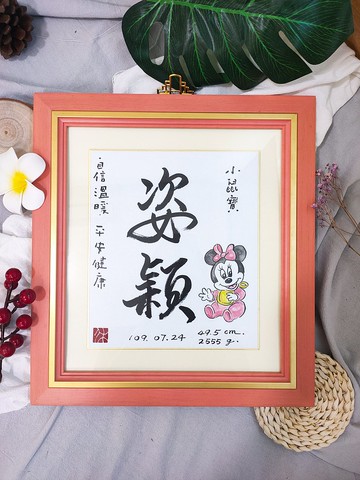 小鼠寶
姿穎
自信溫暖 平安健康
109.07.24
49.5 cm.
2555 g.